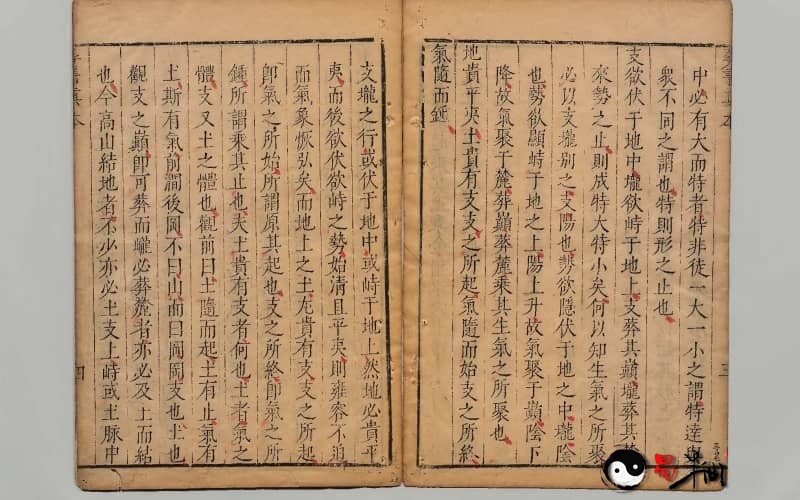 中必有大而特者特非徒一大一小之謂特達與
衆不同之謂也特則形之止也
支欲伏于地中壠欲峙于地上支葬其巔壠葬其
來勢之止則成特大特小矣何以知生氣之所聚
必以支壠别之支陽也勢欲隱伏于地之中壠陰
也勢欲顯峙于地之上陽上升故氣聚于巔陰下
降故氣聚于麓葬巔葬麓乘其生氣之所聚也
地貴平夷土貴有支支之所起氣隨而始支之所終
氣隨而鍾
支壠之行或伏于地中或峙于地上然地必貴平
夷而後欲伏欲峙之勢始清且平夷則雍容不迫
而氣象恢弘矣而地上之土尤貴有支支之所起
卽氣之所始所謂原其起也支之所終卽氣之所
鍾所謂乘其止也夫土貴有支者何也土者氣之
體支又土之體也觀前曰土隨而起土有止氣有
土斯有氣前澗後岡不曰山而曰岡岡支也土也
觀支之巔卽可葬而壠必葬麓者亦必及土而結
也今高山結地者不少亦必土支上峙或土脉中
三
四